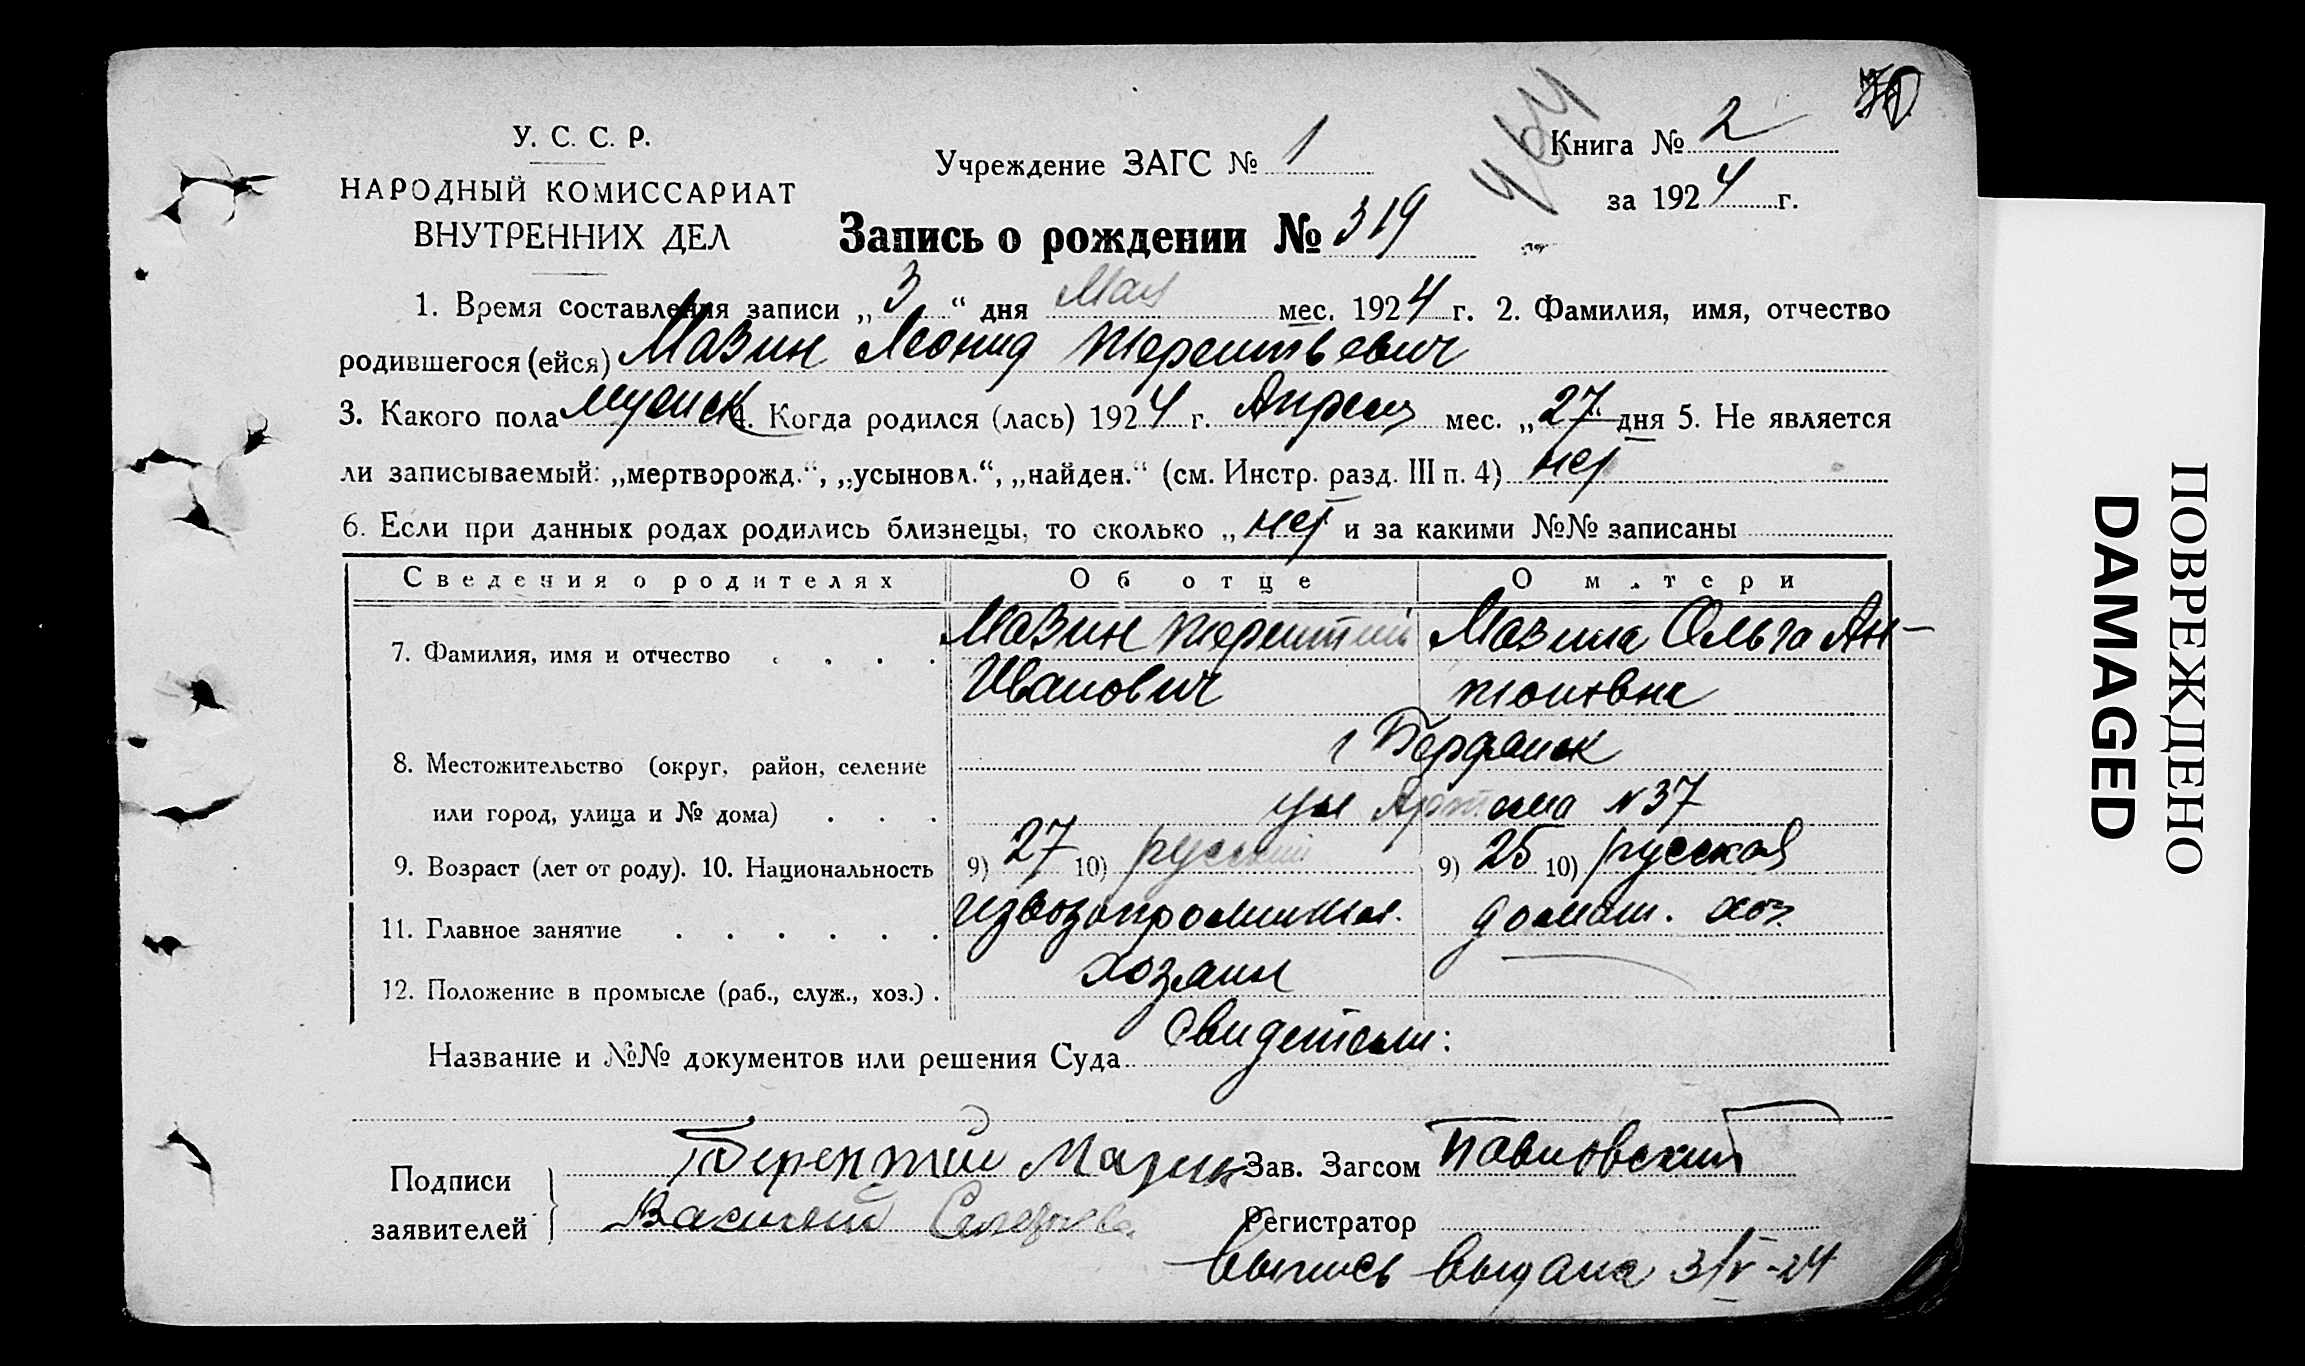 У. С. С. Р.
НАРОДНЫЙ КОМИССАРИАТ
ВНУТРЕННИХ ДЕЛ
Учреждение ЗАГС № 1
464
Книга № 2
за 1924 г.
Запись о рождении № 319
1. Время составления записи „3“ дня Мая мес. 1924 г. 2. Фамилия, имя, отчество
родившегося (ейся) Мазин Леонид Терентьевич
3. Какого пола мужск 4. Когда родился (лась) 1924 г. Апреля мес. „27“ дня 5. Не является
ли записываемый: „мертворожд.“, „усыновл.“, „найден.“ (см. Инстр. разд. III п. 4) нет
6. Если при данных родах родились близнецы, то сколько „нет и за какими №№ записаны
Сведения о родителях Об отце О м.тери
7. Фамилия, имя и отчество . . . . Мазин Терентий Мазина Ольга Ан-
Иванович тоновна
г Бердянск
8. Местожительство (округ, район, селение
или город, улица и № дома) . . . ул Артема № 37
9. Возраст (лет от роду). 10. Национальность 9) 27 10) русский 9) 25 10) русская
11. Главное занятие . . . . . . извозопромышл. домаш. хоз.
12. Положение в промысле (раб., служ., хоз.) . хозяин
Название и №№ документов или решения Суда Свидетели:
Подписи заявителей
Терентий Мазин
Василий
Зав. Загсом Павловский
Регистратор
Выпись выдана 3/V-24
ПОВРЕЖДЕНО
DAMAGED